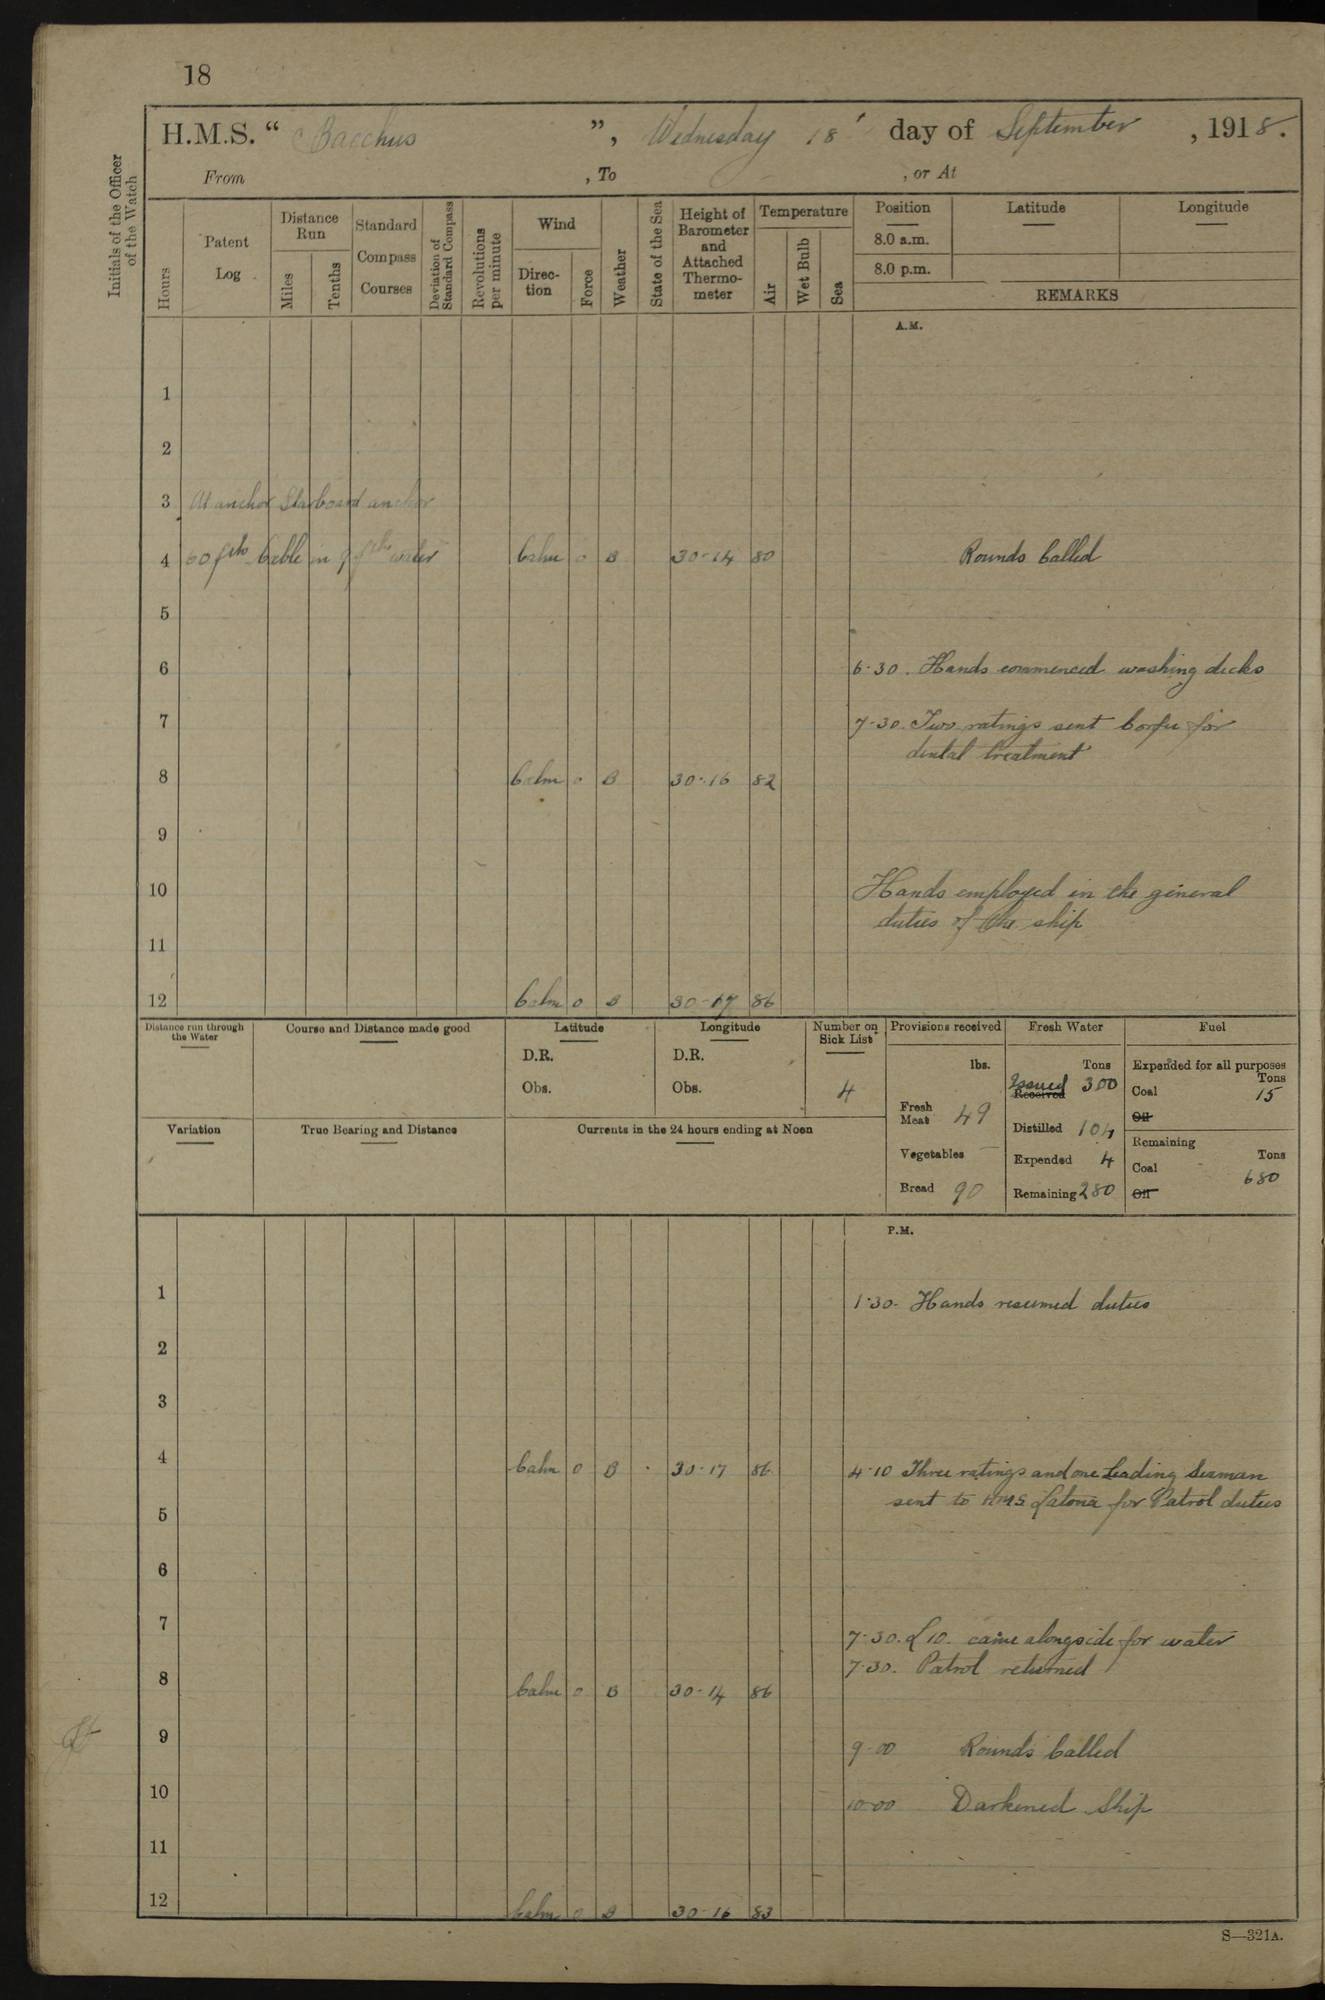 18
H.M.S. “ Bacchus ”, Wednesday 18 day of September , 1918.
From , To , or At
Initials of the Officer of the Watch
Hours
Patent Log
Distance Run
Miles
Tenths
Standard Compass Courses
Deviation of Standard Compass
Revolutions per minute
Wind
Direc-tion
Force
Weather
State of the Sea
Height of Barometer and Attached Thermo-meter
Temperature
Air
Wet Bulb
Sea
Position
Latitude
Longitude
8.0 a.m.
8.0 p.m.
REMARKS
A.M.
1
2
3 At anchor Starboard anchor
4 60 fths Cable in 9 fths water Calm 0 B 30-14 80 Rounds Called
5
6 6-30. Hands commenced washing decks
7 7-30. Two ratings sent Corfu for
dental treatment
8 Calm 0 B 30-16 82
9
10 Hands employed in the general
duties of the ship
11
12 Calm 0 B 30-17 86
Distance run through the Water
Course and Distance made good
Latitude
D.R.
Obs.
Longitude
D.R.
Obs.
Number on Sick List
4
Provisions received
lbs.
Fresh Meat 49
Vegetables —
Bread 90
Fresh Water
Tons
Issued Received 300
Distilled 104
Expended 4
Remaining 280
Fuel
Expended for all purposes
Tons
Coal 15
Oil
Remaining
Tons
Coal 680
Oil
Variation
True Bearing and Distance
Currents in the 24 hours ending at Noon
P.M.
1 1-30- Hands resumed duties
2
3
4 Calm 0 B 30-17 86 4-10 Three ratings and one Leading Seaman
sent to HMS Latona for Patrol duties
5
6
7 7-30. L10. came alongside for water
7-30. Patrol returned
8 Calm 0 B 30-14 86
9 9-00 Rounds Called
10 10-00 Darkened Ship
11
12 Calm 0 B 30-16 83
S—321A.